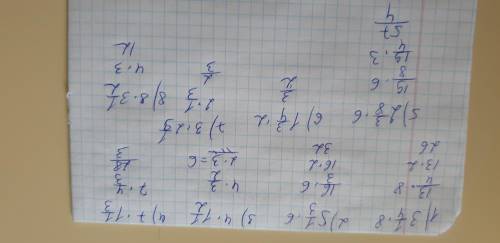 1) 3 1/4 · 8   2) 5 1/3 · 6   3) 4 · 1 1/2   4) 7 · 1 1/3
13/4 · 8   16/3 · 6   4 · 3/2   7 · 4/3
13 · 2   16 · 2   2 · 3 = 6   28/3
26   32
5) 2 3/8 · 6   6) 1   · 2   7) 3 · 2   8) 8 · 3 1/2
19/8 · 6   4 · 3
19/4 · 3   12
57/4